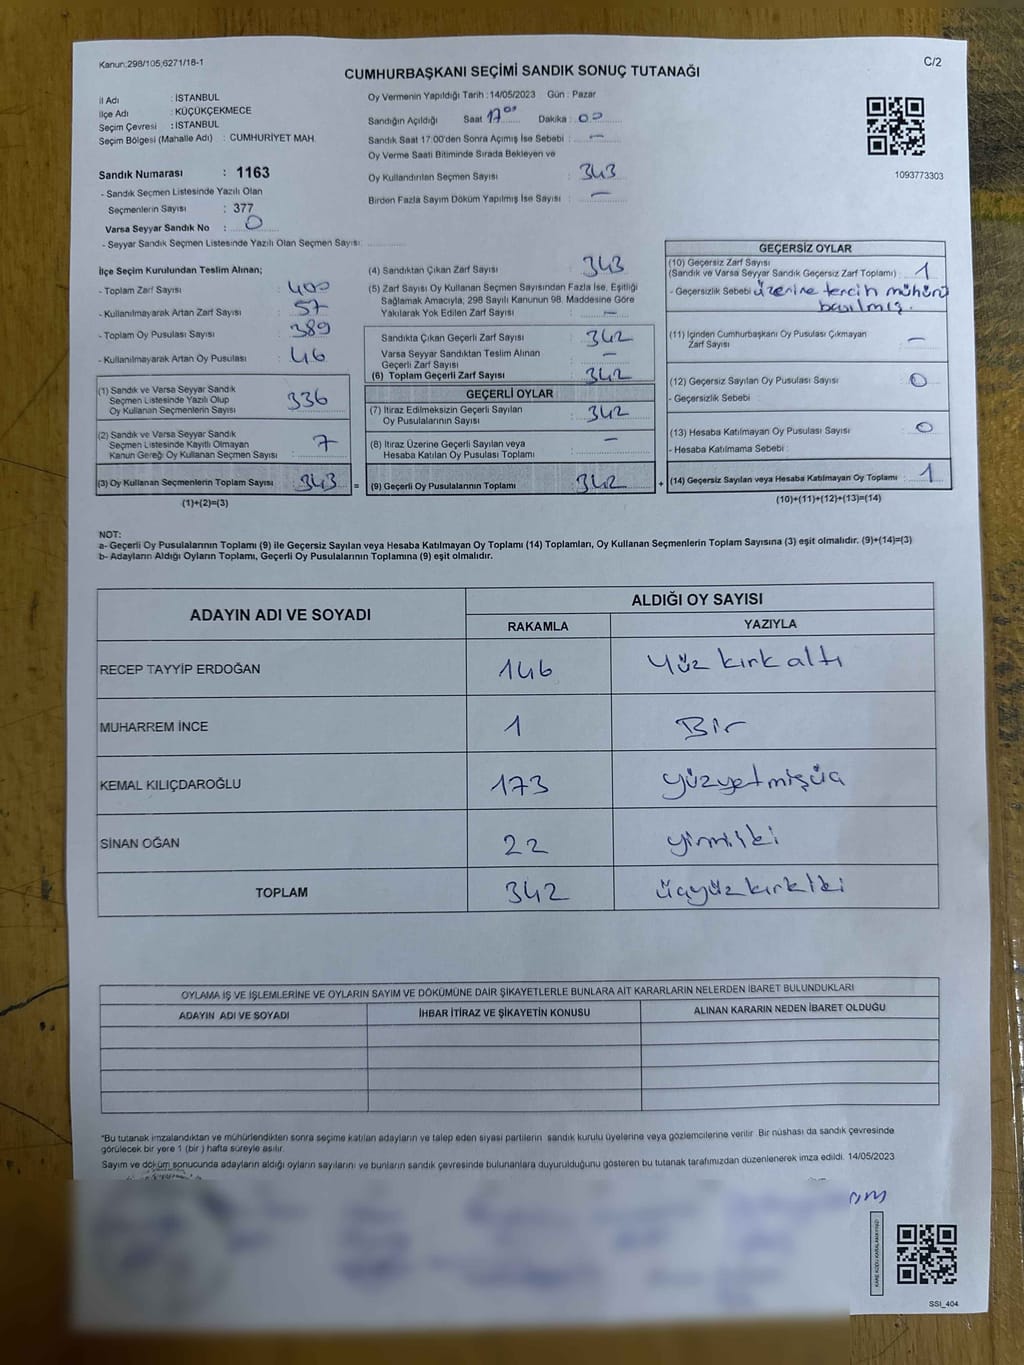 Kanun:298/105,6271/18-1
C/2
CUMHURBAŞKANI SEÇİMİ SANDIK SONUÇ TUTANAĞI
İl Adı : İSTANBUL
İlçe Adı : KÜÇÜKÇEKMECE
Seçim Çevresi : İSTANBUL
Seçim Bölgesi (Mahalle Adı) : CUMHURİYET MAH.
Sandık Numarası : 1163
- Sandık Seçmen Listesinde Yazılı Olan
Seçmenlerin Sayısı : 377
Varsa Seyyar Sandık No : 0
- Seyyar Sandık Seçmen Listesinde Yazılı Olan Seçmen Sayısı:
Oy Vermenin Yapıldığı Tarih : 14/05/2023 Gün : Pazar
Sandığın Açıldığı Saat 17°° Dakika : 00
Sandık Saat 17.00'den Sonra Açımış İse Sebebi : —
Oy Verme Saati Bitiminde Sırada Bekleyen ve
Oy Kullandırılan Seçmen Sayısı : 343
Birden Fazla Sayım Döküm Yapılmış İse Sayısı : —
1093773303
İlçe Seçim Kurulundan Teslim Alınan;
- Toplam Zarf Sayısı : 400
- Kullanılmayarak Artan Zarf Sayısı : 57
- Toplam Oy Pusulası Sayısı : 389
- Kullanılmayarak Artan Oy Pusulası : 46
(1) Sandık ve Varsa Seyyar Sandık
Seçmen Listesinde Yazılı Olup
Oy Kullanan Seçmenlerin Sayısı : 336
(2) Sandık ve Varsa Seyyar Sandık
Seçmen Listesinde Kayıtlı Olmayan
Kanun Gereği Oy Kullanan Seçmen Sayısı : 7
(3) Oy Kullanan Seçmenlerin Toplam Sayısı : 343 =
(1)+(2)=(3)
(4) Sandıktan Çıkan Zarf Sayısı : 343
(5) Zarf Sayısı Oy Kullanan Seçmen Sayısından Fazla İse, Eşitliği
Sağlamak Amacıyla, 298 Sayılı Kanunun 98. Maddesine Göre
Yakılarak Yok Edilen Zarf Sayısı : —
Sandıkta Çıkan Geçerli Zarf Sayısı : 342
Varsa Seyyar Sandıktan Teslim Alınan
Geçerli Zarf Sayısı : —
(6) Toplam Geçerli Zarf Sayısı : 342
GEÇERLİ OYLAR
(7) İtiraz Edilmeksizin Geçerli Sayılan
Oy Pusulalarının Sayısı : 342
(8) İtiraz Üzerine Geçerli Sayılan veya
Hesaba Katılan Oy Pusulası Toplamı : —
(9) Geçerli Oy Pusulalarının Toplamı : 342 +
GEÇERSİZ OYLAR
(10) Geçersiz Zarf Sayısı
(Sandık ve Varsa Seyyar Sandık Geçersiz Zarf Toplamı) : 1
- Geçersizlik Sebebi : üzerine tercih mühürü
basılmış.
(11) İçinden Cumhurbaşkanı Oy Pusulası Çıkmayan
Zarf Sayısı : —
(12) Geçersiz Sayılan Oy Pusulası Sayısı : 0
- Geçersizlik Sebebi :
(13) Hesaba Katılmayan Oy Pusulası Sayısı : 0
- Hesaba Katılmama Sebebi :
(14) Geçersiz Sayılan veya Hesaba Katılmayan Oy Toplamı : 1
(10)+(11)+(12)+(13)=(14)
NOT:
a- Geçerli Oy Pusulalarının Toplamı (9) ile Geçersiz Sayılan veya Hesaba Katılmayan Oy Toplamı (14) Toplamları, Oy Kullanan Seçmenlerin Toplam Sayısına (3) eşit olmalıdır. (9)+(14)=(3)
b- Adayların Aldığı Oyların Toplamı, Geçerli Oy Pusulalarının Toplamına (9) eşit olmalıdır.
ADAYIN ADI VE SOYADI
ALDIĞI OY SAYISI
RAKAMLA YAZIYLA
RECEP TAYYİP ERDOĞAN 146 Yüz kırk altı
MUHARREM İNCE 1 Bir
KEMAL KILIÇDAROĞLU 173 yüzyetmişüç
SİNAN OĞAN 22 yirmiiki
TOPLAM 342 üçyüzkırkiki
OYLAMA İŞ VE İŞLEMLERİNE VE OYLARIN SAYIM VE DÖKÜMÜNE DAİR ŞİKAYETLERLE BUNLARA AİT KARARLARIN NELERDEN İBARET BULUNDUKLARI
ADAYIN ADI VE SOYADI İHBAR İTİRAZ VE ŞİKAYETİN KONUSU ALINAN KARARIN NEDEN İBARET OLDUĞU
*Bu tutanak imzalandıktan ve mühürlendikten sonra seçime katılan adayların ve talep eden siyasi partilerin sandık kurulu üyelerine veya gözlemcilerine verilir. Bir nüshası da sandık çevresinde
görülecek bir yere 1 (bir ) hafta süreyle asılır.
Sayım ve döküm sonucunda adayların aldığı oyların sayılarını ve bunların sandık çevresinde bulunanlara duyurulduğunu gösteren bu tutanak tarafımızdan düzenlenerek imza edildi. 14/05/2023
KARE KODU KARALAMAYINIZ!
SSI_404